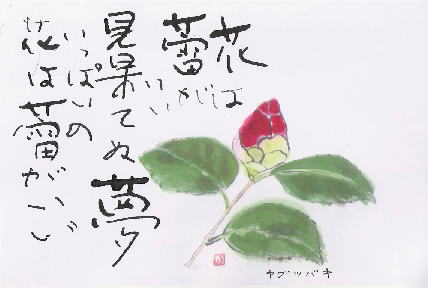 花は
蕾が
いい
見果てぬ夢
いっぱいの
花は蕾がいい
ヤブツバキ